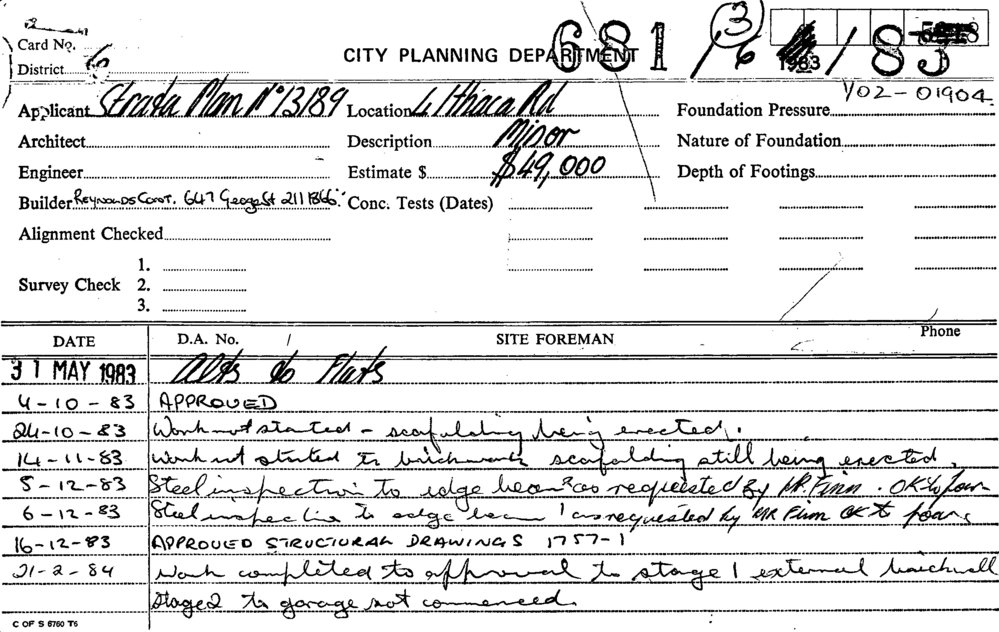 Card No.
District
CITY PLANNING DEPARTMENT 681 / 6 / 83
3
1983
V02-01904
Applicant Strata Plan No 13189 Location 4 Ithaca Rd Foundation Pressure
Architect Description Minor Nature of Foundation
Engineer Estimate $ $49,000 Depth of Footings
Builder Reynolds Const. 647 George St 211 1866 Conc. Tests (Dates)
Alignment Checked
1.
Survey Check 2.
3.
DATE D.A. No. SITE FOREMAN Phone
31 MAY 1983 Alts to Flats
4-10-83 APPROVED
24-10-83 Work not started - scafolding being erected.
14-11-83 Work not started to brickwork scafolding still being erected.
5-12-83 Steel inspection to edge beam 2 as requested by MR. Finn. OK to pour
6-12-83 Steel inspection to edge beam 1 as requested by MR Flinn OK to pour
16-12-83 APPROVED STRUCTURAL DRAWINGS 1757-1
21-2-84 Work completed to approval to stage 1 external brickwall
stage 2 to garage not commenced.
C OF S 6760 T6